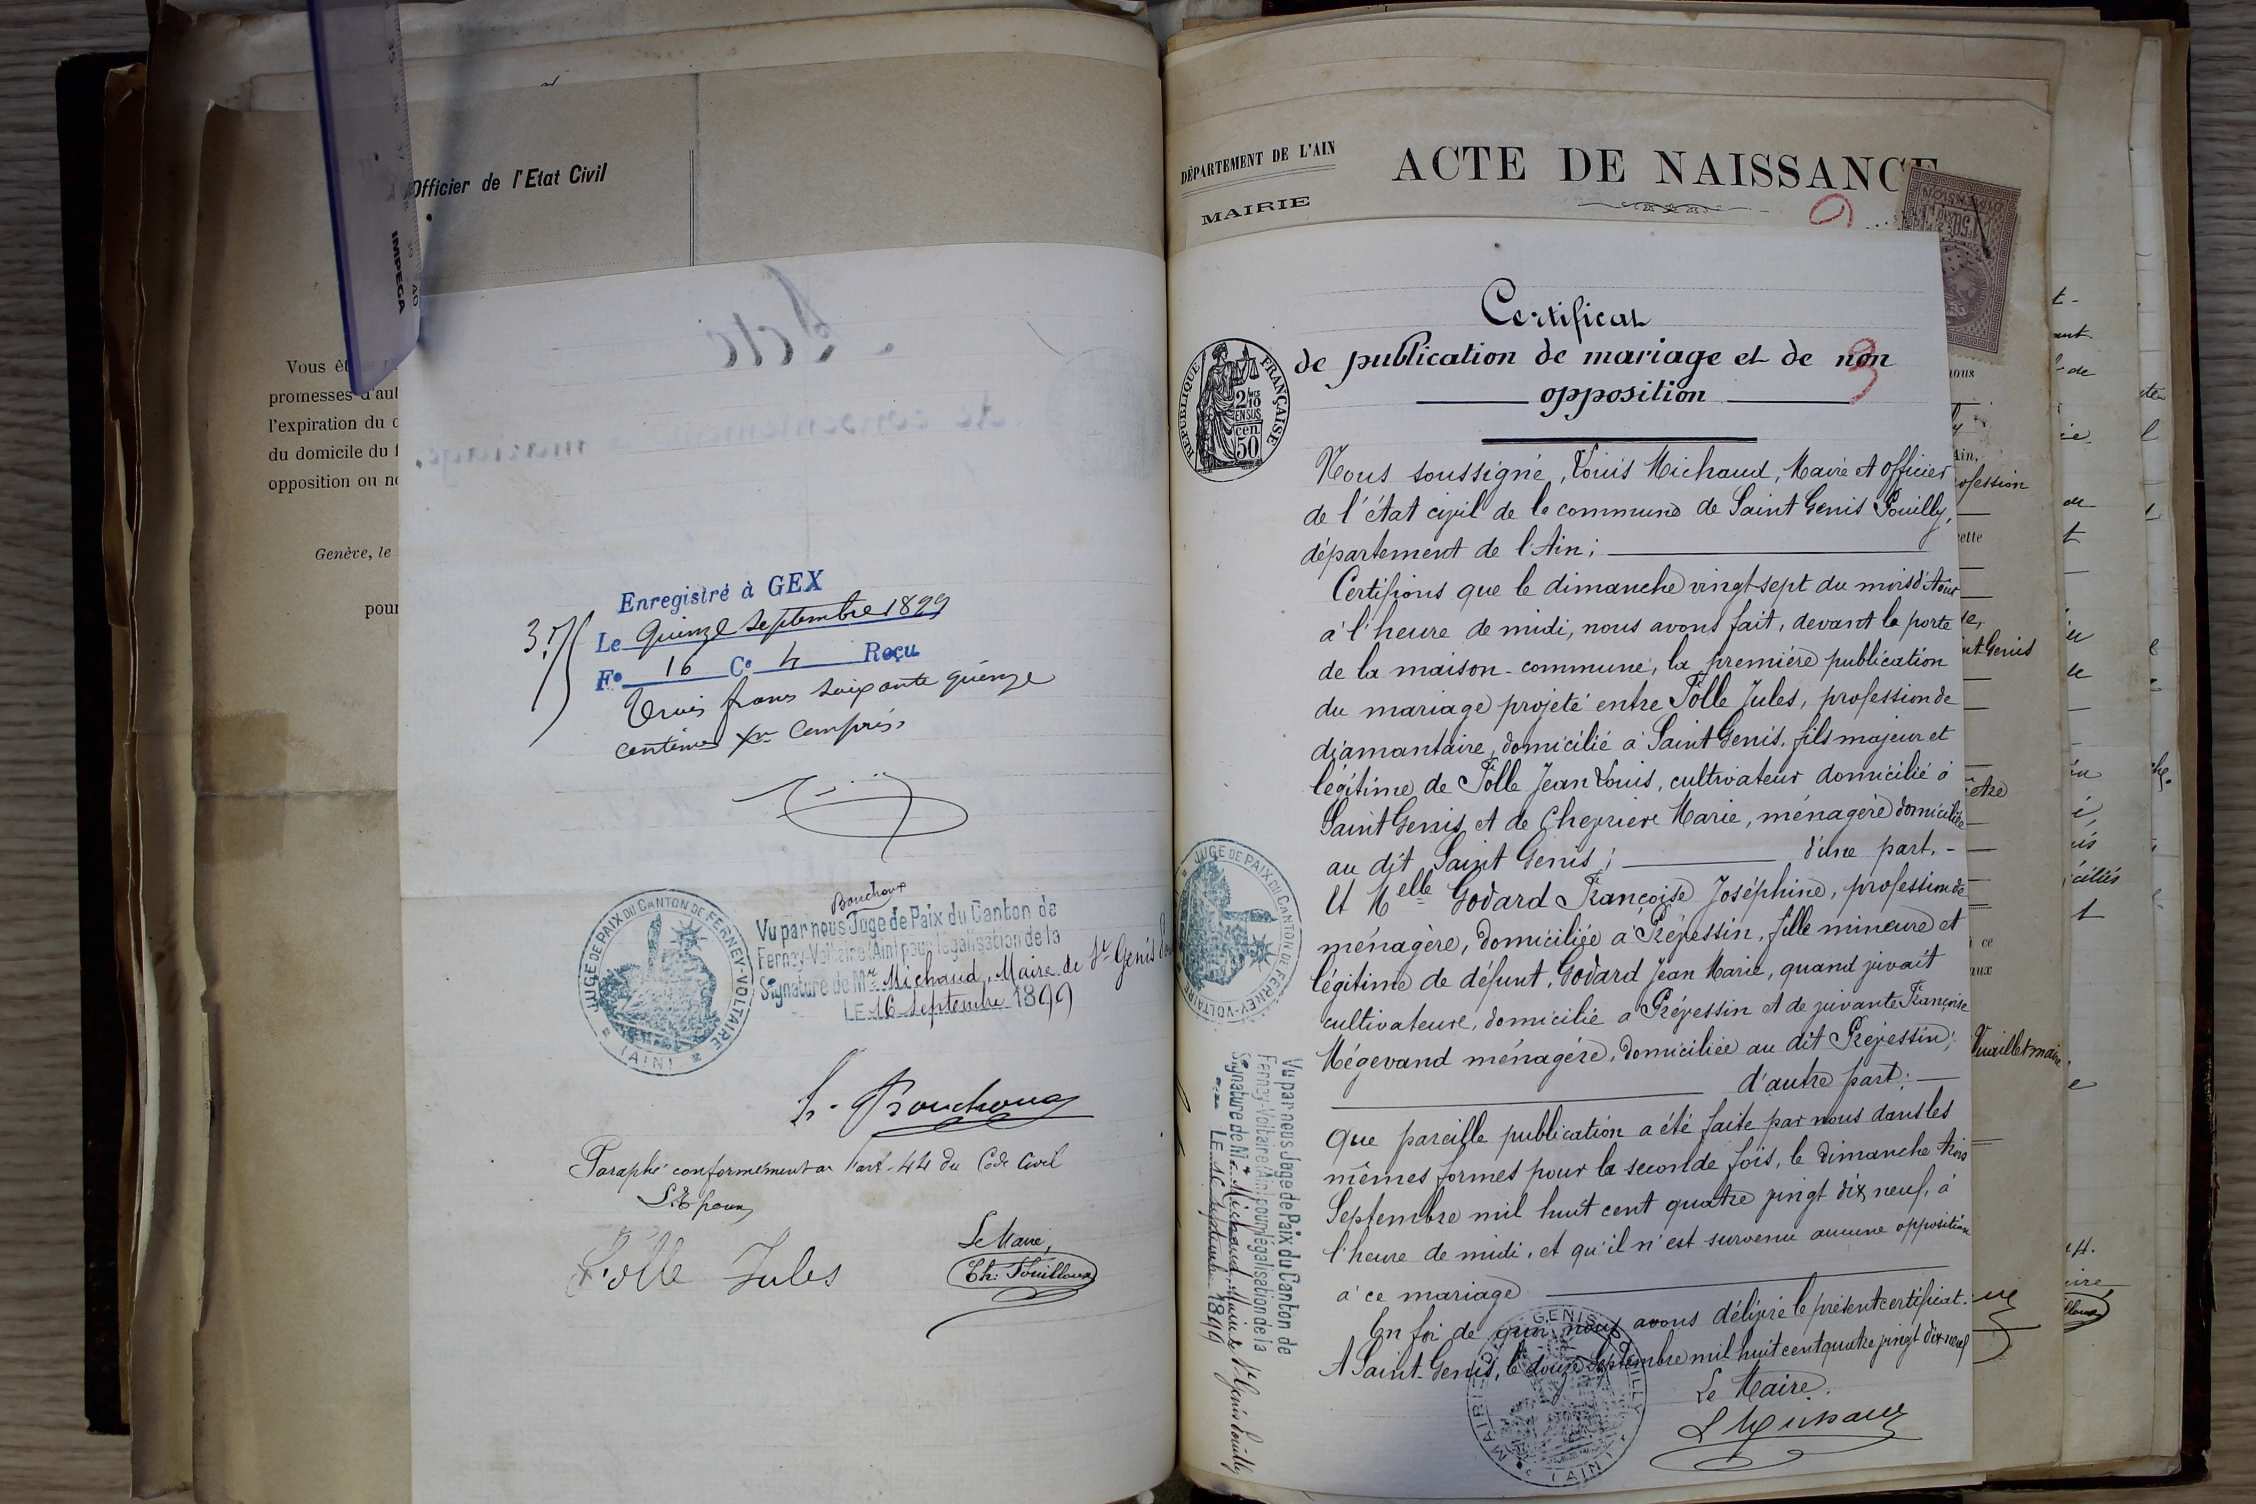 Officier de l'Etat Civil
Vous êt
promesses d'aut
l'expiration du d
du domicile du f
opposition ou no
Genève, le
pour
IMPEGA
Acte
de consentement à mariage.
Enregistré à GEX
Le quinze Septembre 1899
F° 16 C° 4 Reçu
3.75
Trois francs soixante quinze
centimes compris.
Bouchoux
Vu par nous Juge de Paix du Canton de
Ferney-Voltaire (Ain) pour légalisation de la
Signature de Mr Michaud, Maire de St Genis
LE 16 Septembre 1899
JUGE DE PAIX DU CANTON DE FERNEY-VOLTAIRE
(AIN)
Bouchoux
Paraphé conformément à l'art. 44 du Code Civil
Folle Jules
Le Maire,
DÉPARTEMENT DE L'AIN
MAIRIE
ACTE DE NAISSANCE
Certificat
de publication de mariage et de non
opposition
RÉPUBLIQUE FRANÇAISE
2/10 EN SUS
50 cen
Nous soussigné, Louis Michaud, Maire et officier
de l'état civil de la commune de Saint Genis Pouilly,
département de l'Ain;
Certifions que le dimanche vingt-sept du mois d'Août
à l'heure de midi, nous avons fait, devant la porte
de la maison-commune, la première publication
du mariage projeté entre Folle Jules, profession de
diamantaire, domicilié à Saint Genis, fils majeur et
légitime de Folle Jean Louis, cultivateur domicilié à
Saint Genis et de Cherrière Marie, ménagère domiciliée
au dit Saint Genis; d'une part.
Et Melle Godard Françoise Joséphine, profession de
ménagère, domiciliée à Prévessin, fille mineure et
légitime de défunt Godard Jean Marie, quand vivait
cultivateur, domicilié à Prévessin et de vivante Françoise
Mégevand ménagère, domiciliée au dit Prévessin;
d'autre part;
Que pareille publication a été faite par nous dans les
mêmes formes pour la seconde fois, le dimanche trois
Septembre mil huit cent quatre vingt dix neuf, à
l'heure de midi, et qu'il n'est survenu aucune opposition
à ce mariage
En foi de quoi nous avons délivré le présent certificat.
A Saint-Genis, le douze Septembre mil huit cent quatre vingt dix-neuf
Le Maire.
L Michaud
JUGE DE PAIX DU CANTON DE FERNEY-VOLTAIRE
Vu par nous Juge de Paix du Canton de
Ferney-Voltaire (Ain) pour légalisation de la
Signature de Mr Michaud, Maire de St Genis Pouilly
LE 16 Septembre 1899